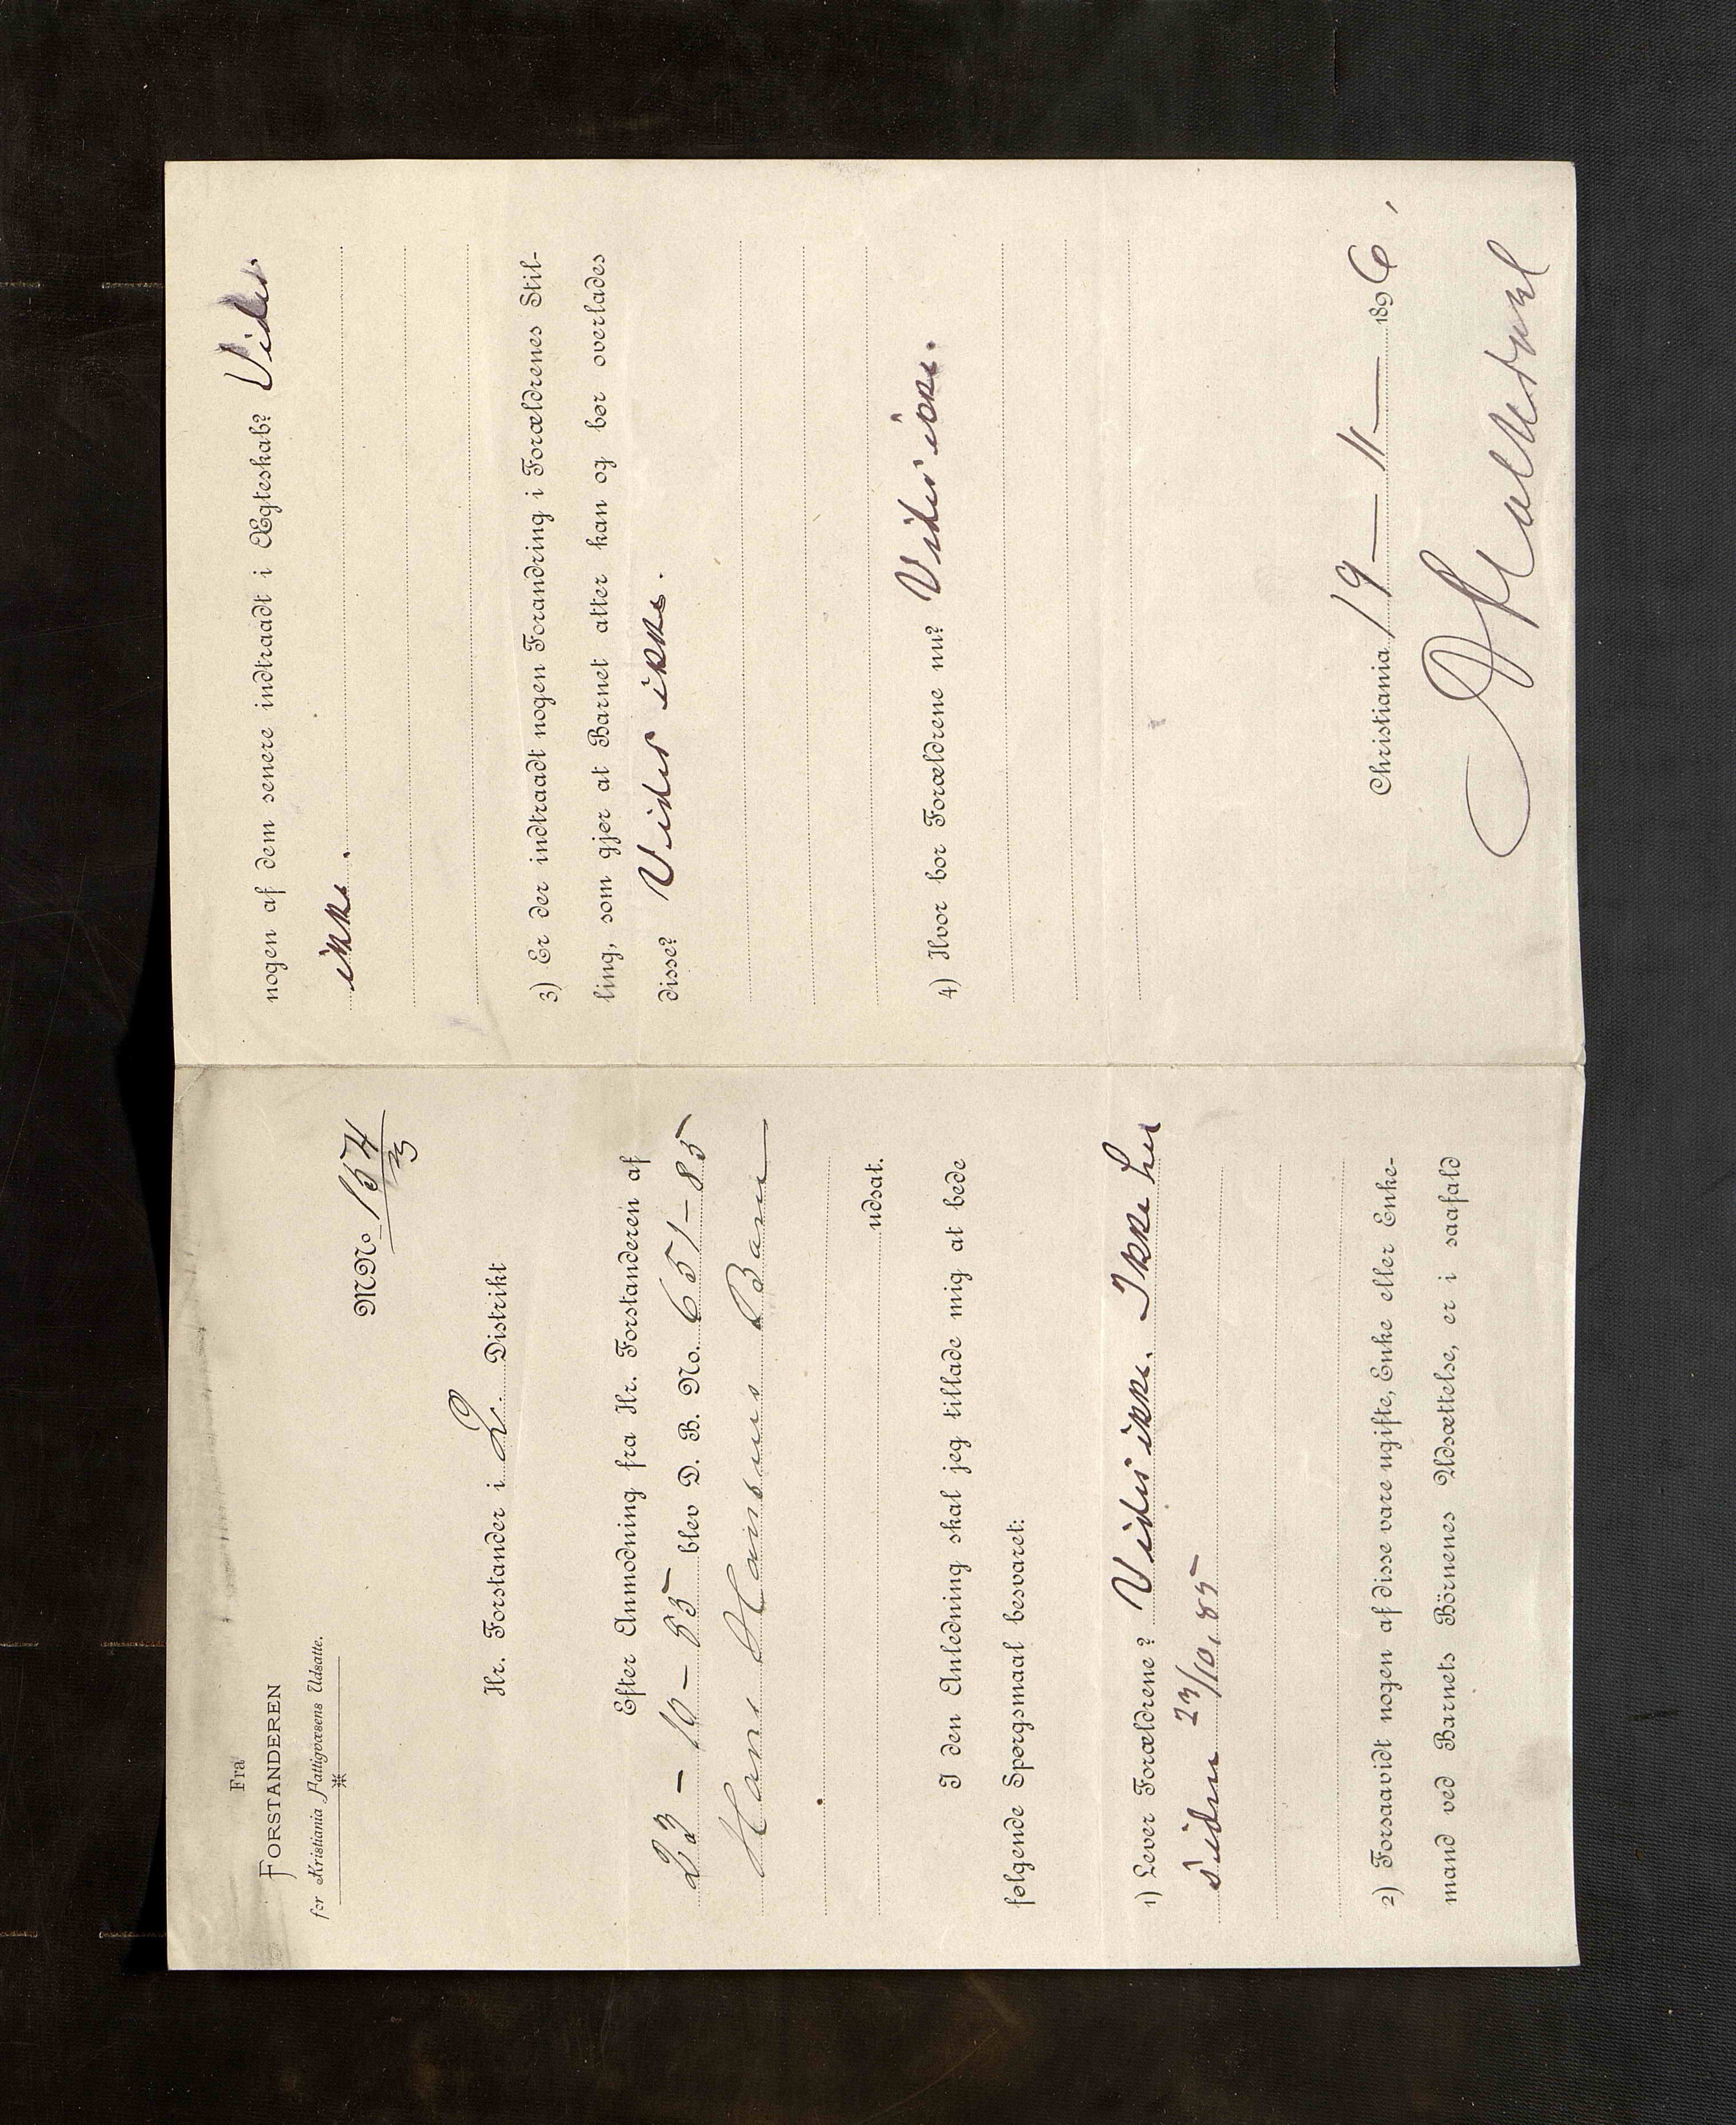 Fra
FORSTANDEREN
for Kristiania Fattigvæsens Udsatte.
M No. 157
3
Hr. Forstander i L. Distrikt
Efter Anmodning fra Hr. Forstanderen af
23 - 10 - 85 blev D. B. No. 651-85
Hans Hansens Barn
udsat.
I den Anledning skal jeg tillade mig at bede
følgende Spørgsmaal besvaret:
1) Lever Forældrene? Vides ikke. Ikke her
siden 23/10. 85
2) Forsaavidt nogen af disse vare ugifte, Enke eller Enke-
mand ved Barnets Börnenes Udsættelse, er i saafald
nogen af dem senere indtraadt i Ægteskab? Vides
ikke.
3) Er der indtraadt nogen Forandring i Forældrenes Stil-
ling, som gjør at Barnet atter kan og bør overlades
disse? Vides ikke.
4) Hvor bor Forældrene nu? Vides ikke.
Christiania 19 - 11 - 1896,